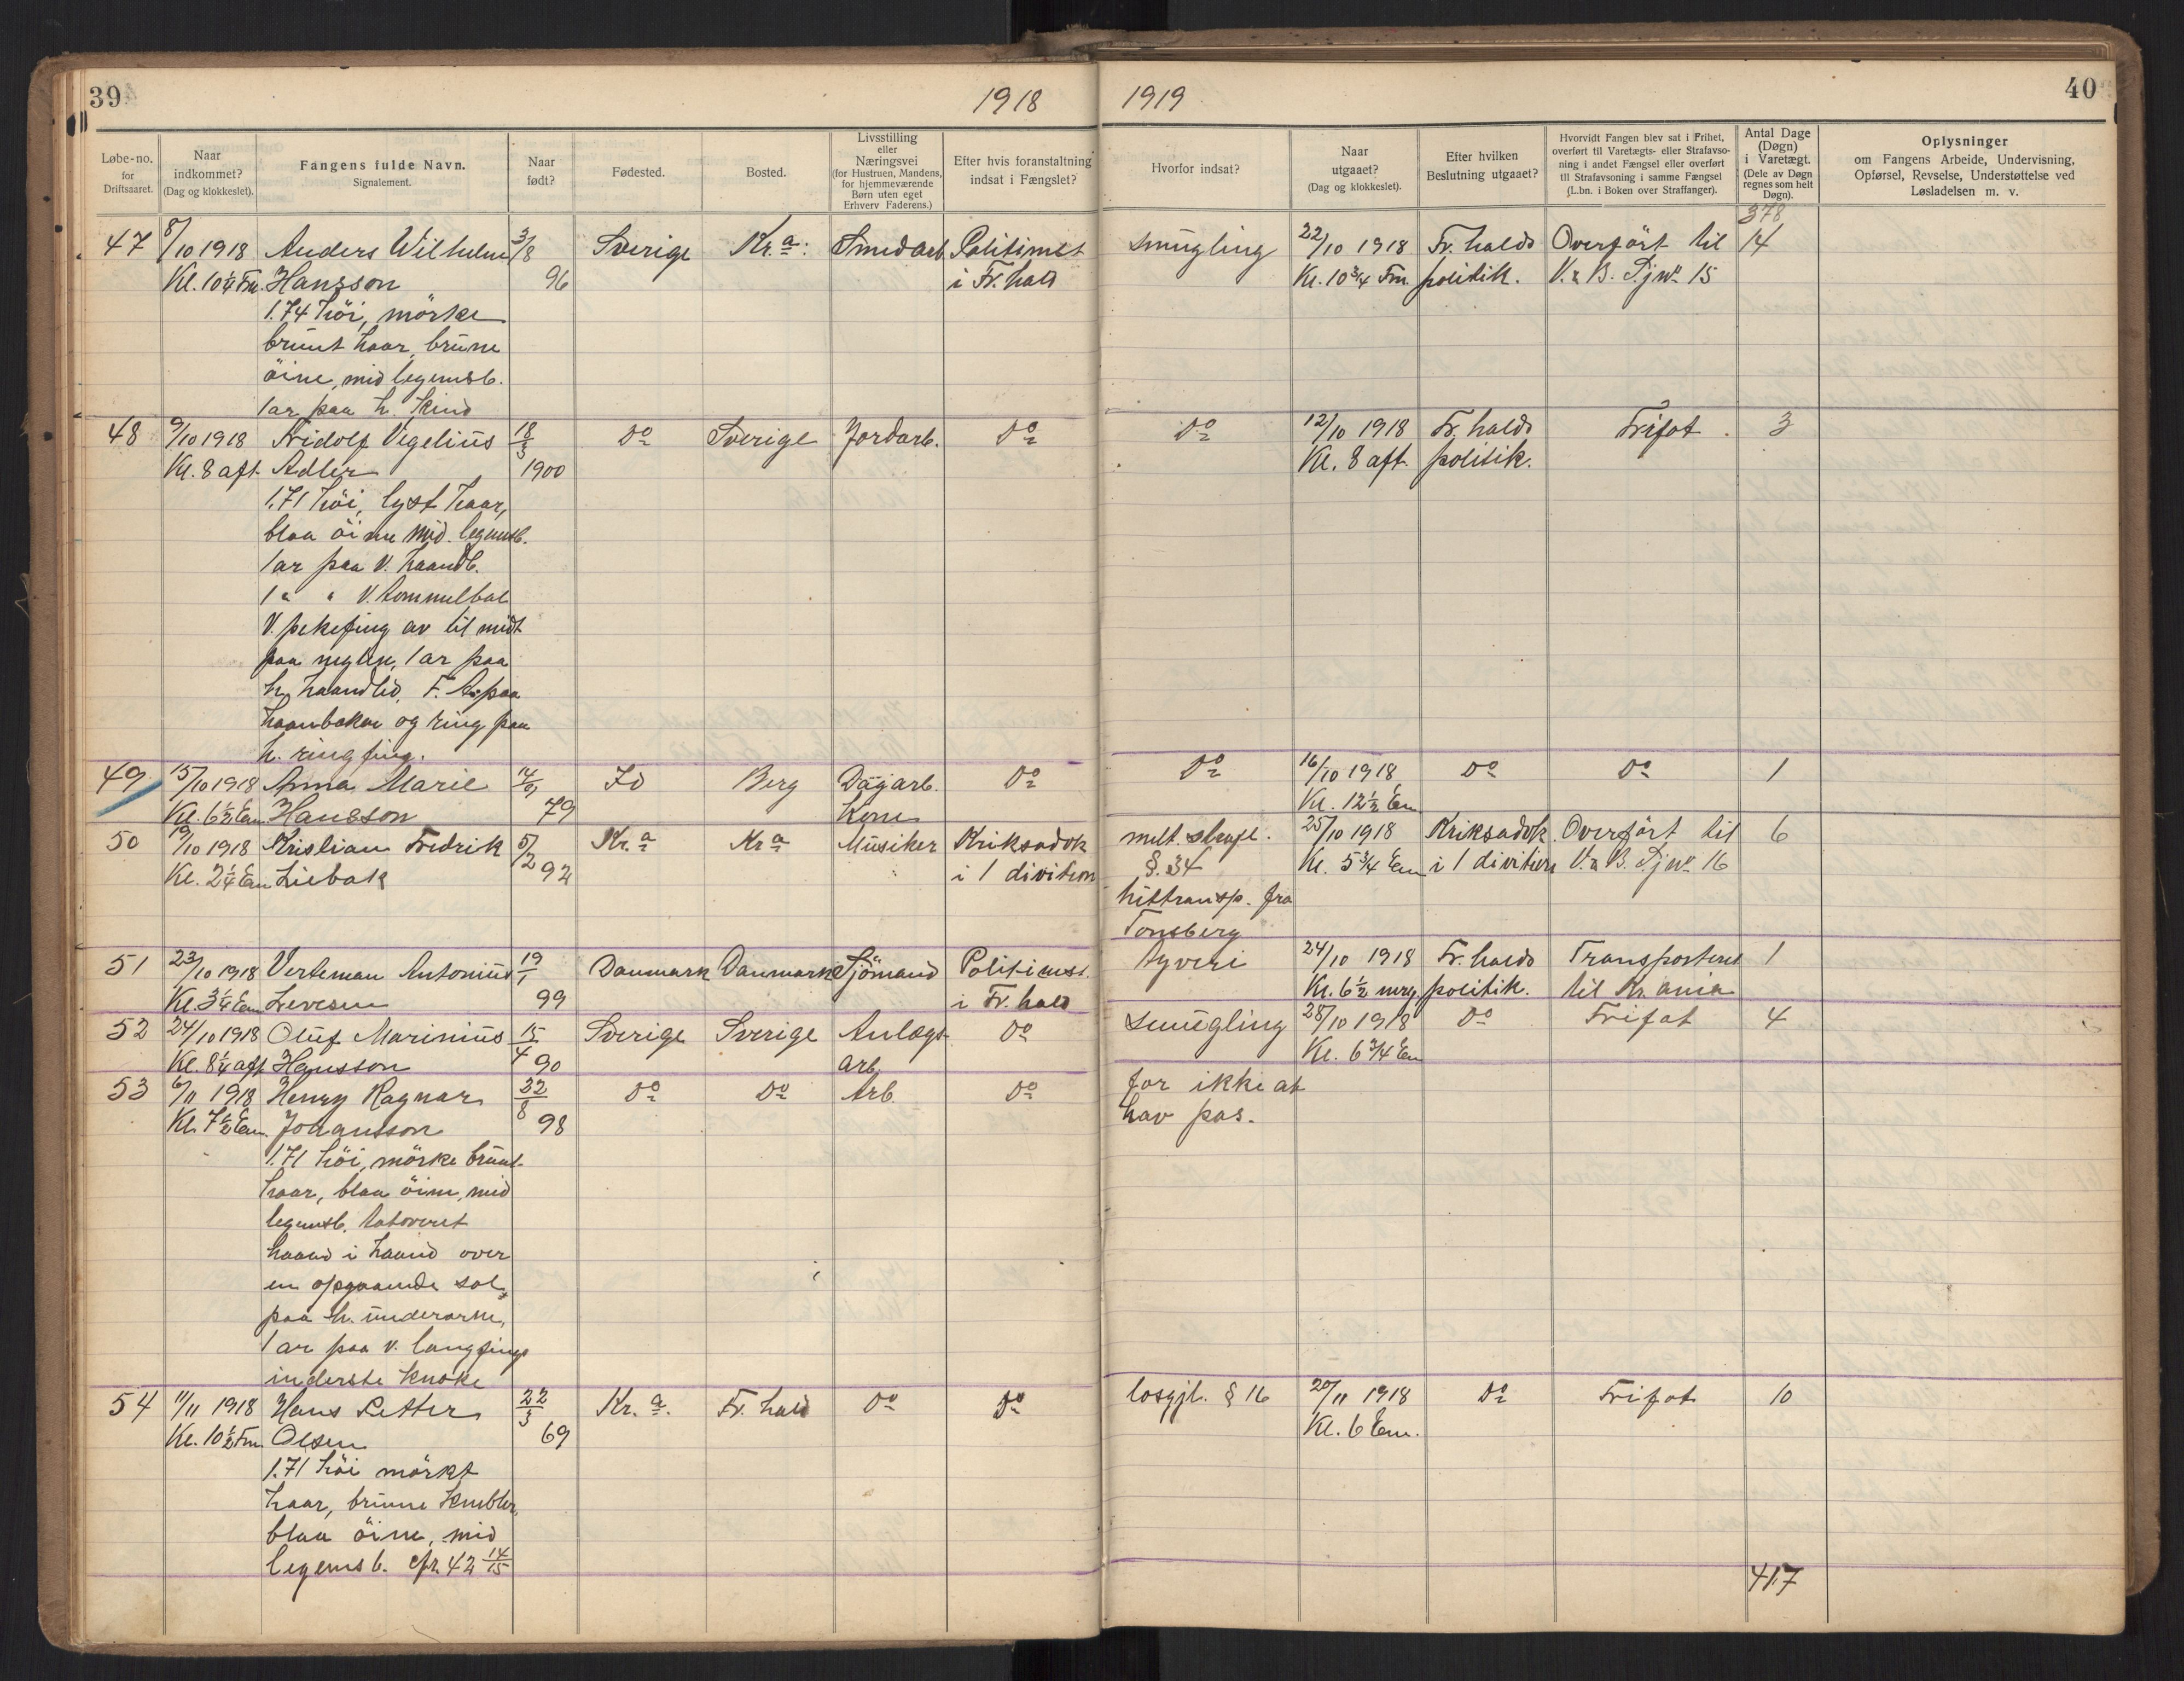 39
1918
1919
40
Løbe-no. for Driftsaaret.
Naar indkommet? (Dag og klokkeslet).
Fangens fulde Navn. Signalement.
Naar født?
Fødested.
Bosted.
Livsstilling eller Næringsvei (for Hustruen, Mandens, for hjemmeværende Børn uten eget Erhverv Faderens.)
Efter hvis foranstaltning indsat i Fængslet?
Hvorfor indsat?
Naar utgaaet? (Dag og klokkeslet).
Efter hvilken Beslutning utgaaet?
Hvorvidt Fangen blev sat i Frihet, overført til Varetægts- eller Strafavsoning i andet Fængsel eller overført til Strafavsoning i samme Fængsel (L.bn. i Boken over Straffanger).
Antal Dage (Døgn) i Varetægt. (Dele av Døgn regnes som helt Døgn).
Oplysninger om Fangens Arbeide, Undervisning, Opførsel, Revselse, Understøttelse ved Løsladelsen m. v.
378
47 8/10 1918 Anders Wilhelm 3/8 Sverige Kr.a: Smedarb. Politimst smugling 22/10 1918 Fr. halds Overført til 14
Kl. 10 1/4 Fm. Hansson 96 i Fr. hald Kl. 10 3/4 Fm. politik. V. a B. Pj No 15
1.74 höi, mörke
brunt haar, brune
öine, mid legemsb.
1 ar paa h. kind
48 9/10 1918 Fridolf Vegelius 18/3 Do Sverige Jordarb. Do Do 12/10 1918 Fr. halds Frifot. 3
Kl. 8 aft. Adler 1900 Kl. 8 aft. politik.
1.71 höi, lyst haar,
blaa öine mid. legemsb.
1 ar paa V. haandb.
1 " " V. tommelbal
V. pekefing av til midt
paa neglen, 1 ar paa
h. haandled, F. A. paa
haanbaken og ring paa
h. ringfing.
49 15/10 1918 Anna Marie 14/9 Id Berg Dagarb. Do Do 16/10 1918 Do Do 1
Kl. 6 1/2 Em Hansson 79 Kone Kl. 12 1/2 Em
50 19/10 1918 Kristian Fredrik 5/2 Kr.a Kr a Musiker Kriksadvk milt. strafl. 25/10 1918 Kriksadvk. Overfört til 6
Kl. 2 1/4 Em Liebak 92 i 1 divition §. 34 Kl. 5 3/4 Em i 1 divition V. a B. Pj No 16
hittransp. fra
Tonsberg
51 23/10 1918 Verteman Antonius 19/1 Danmark Danmark Sjömand Politimst. tyveri 24/10 1918 Fr. halds Transporteret 1
Kl. 3 1/4 Em Levesen 99 i Fr. hald Kl. 6 1/2 mrg. politik. til Kr.ania
52 24/10 1918 Oluf Marinius 15/4 Sverige Sverige Anlægs- Do smugling 28/10 1918 Do Frifot 4
Kl. 8 1/4 aft Hansson 90 arb. Kl. 6 3/4 Em
53 6/11 1918 Henry Ragnar 22/8 Do Do Arb. Do for ikke at
Kl. 7 1/2 Em. Johansson 98 hav pas.
1.71 höi, mörke brunt-
haar, blaa öine, mid
legemsb. tatoveret
haand i haand over
en opgaande sol,
paa h. underarm,
1 ar paa v. langfings
inderste knoke
54 11/11 1918 Hans Petter 22/3 Kr. a. Fr. hald Do Do losgjl. § 16 20/11 1918 Do Frifot 10
Kl. 10 1/2 Fm. Olsen 69 Kl. 6 Em.
1.71 höi mörkt
haar, brune knebler,
blaa öine, mid
legemsb. cfr. 42 14/15
417